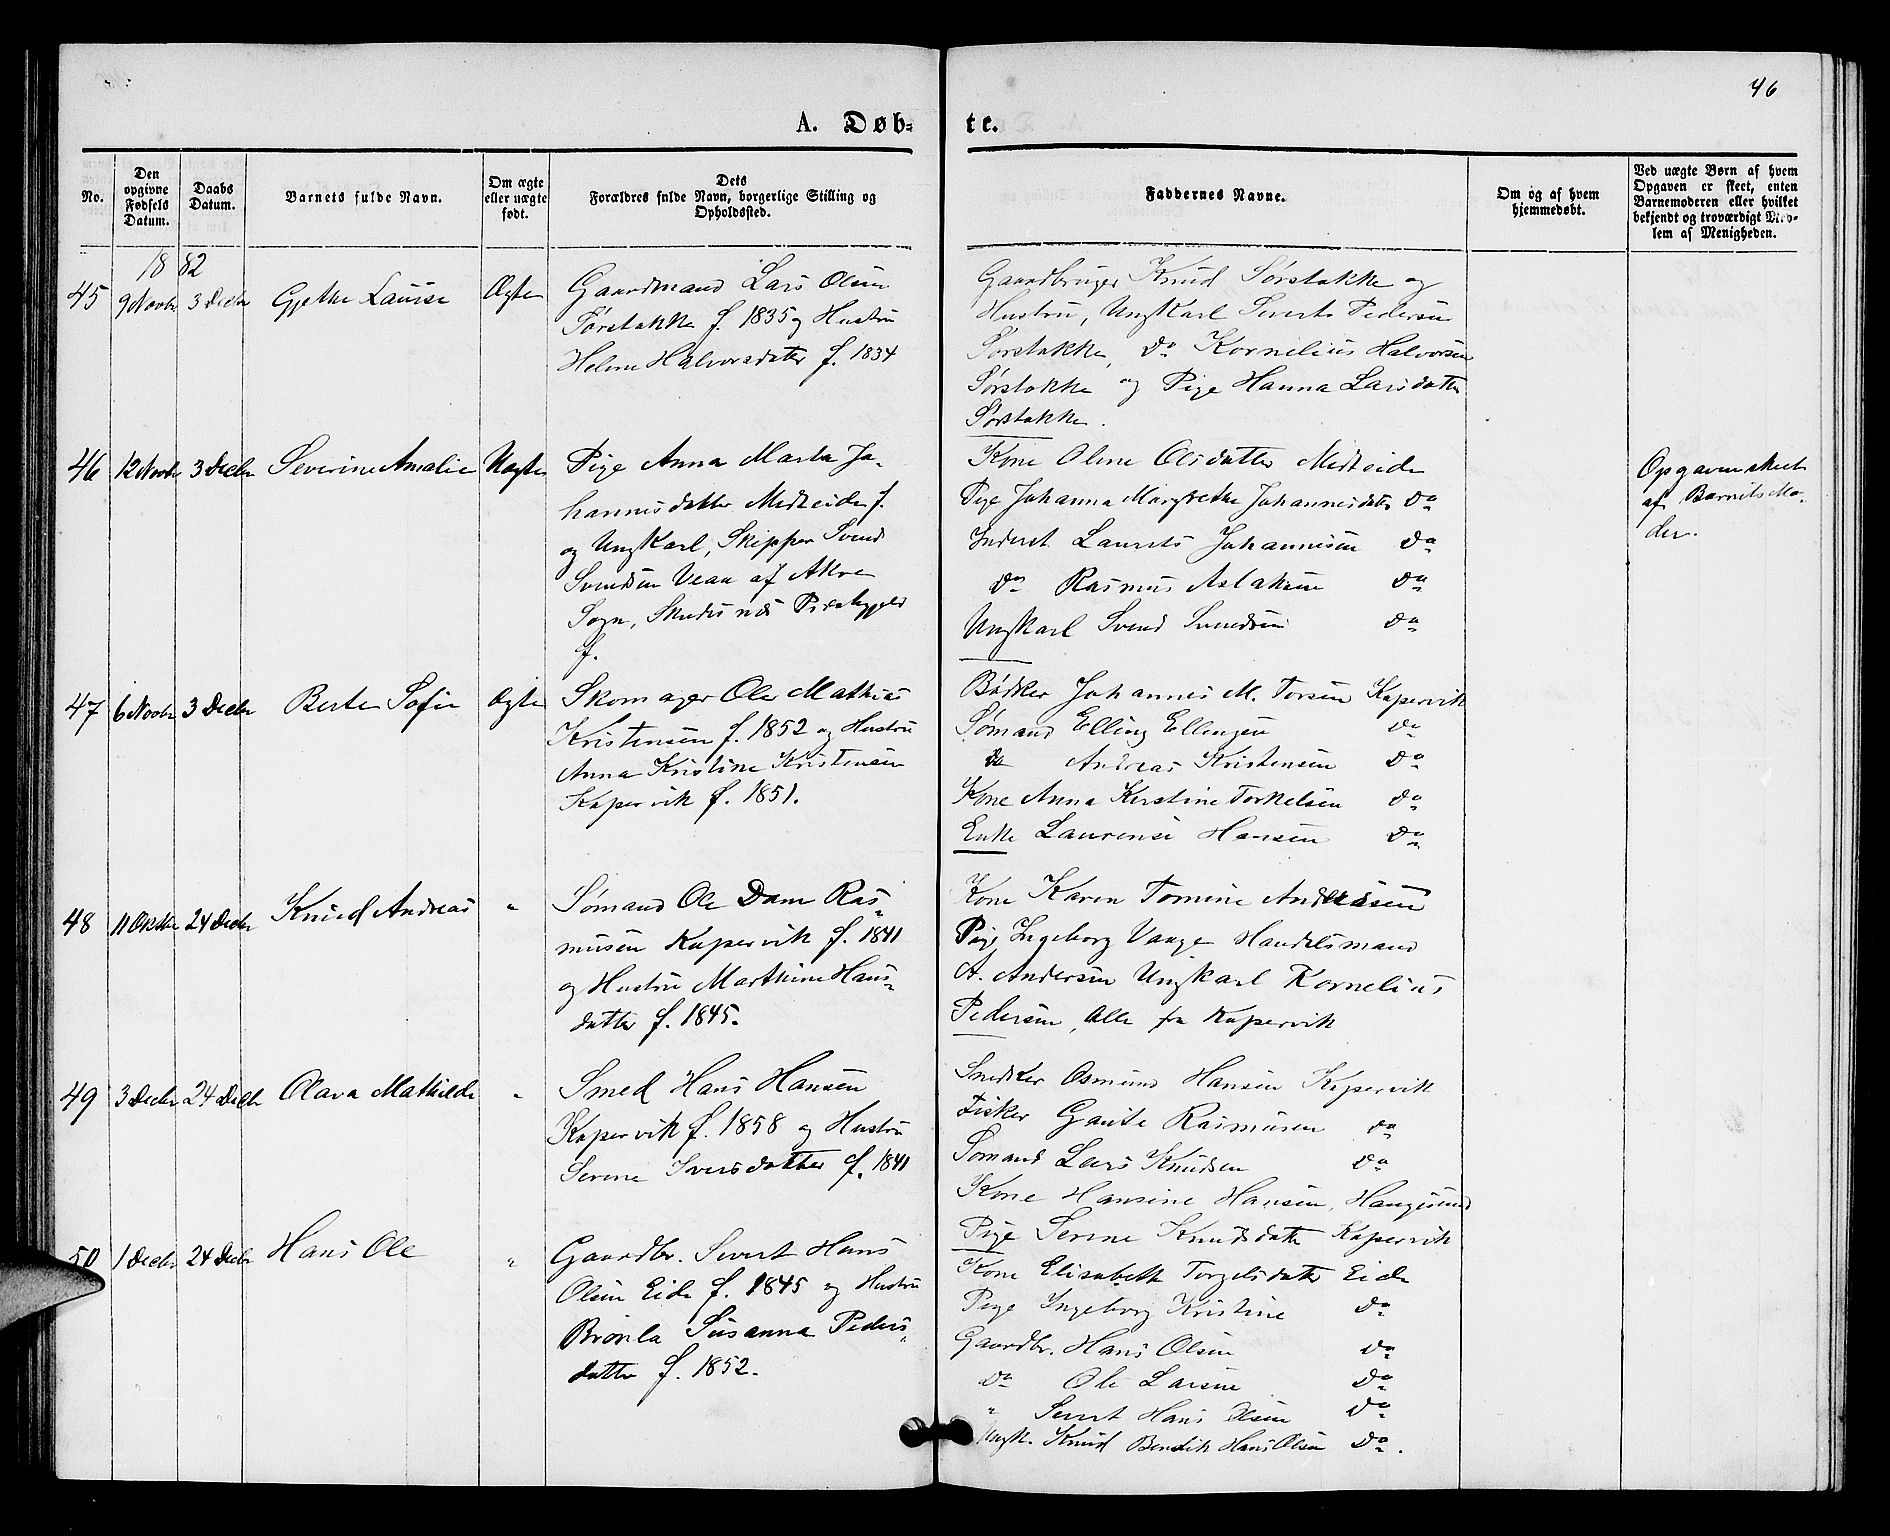 46
A. Døb-
te.
No.
Den
opgivne
Fødsels
Datum.
Daabs
Datum.
Barnets fulde Navn.
Om ægte
eller uægte
født.
Dets
Forældres fulde Navn, borgerlige Stilling og
Opholdssted.
Faddernes Navne.
Om og af hvem
hjemmedøbt.
Ved uægte Børn af hvem
Opgaven er skeet, enten
Barnemoderen eller hvilket
bekjendt og troværdigt Med-
lem af Menigheden.
1882
45 9 Novbr 3 Decbr Gjethe Lauise Ægte
Gaardmand Lars Olsen
Sørstokke f. 1835 og Hustru
Helene Halvorsdatter f. 1834
Gaardbruger Knud Sørstokke og
Hustru, Ungkarl Sivert Pedersen
Sørstokke, do Kornelius Halvorsen
Sørstokke og Pige Hanna Larsdatter
Sørstokke.
46 12 Novbr 3 Decbr Severine Amalie Uægte
Pige Anna Marta Jo-
hannisdatter Medteide f.
og Ungkarl, Skipper Svend
Svendsen Vean af Akre
Sogn, Skudesnæs
f.
Kone Olene Olsdatter Medteide
Pige Johanna Margrethe Johannisdatter do
Inderst Laurits Johannisen do
do Rasmus Aslaksen do
Ungkarl Svend Svendsen do
Opgaven skeet
af Barnets Mo-
der.
47 6 Novbr 3 Decbr Berte Sofie Ægte
Skomager Ole Mathias
Kristensen f. 1852 og Hustru
Anna Kristine Kristensen
Kopervik f. 1851.
Bødker Johannes M. Torsen Kopervik
Sømand Elling Ellingsen do
do Andreas Kristensen do
Kone Anna Kirstine Torkelsen do
Enke Laurense Hansen do
48 11 Oktbr 24 Decbr Knud Andreas "
Sømand Ole Dam Ras-
musen Kopervik f. 1841
og Hustru Marthine Hans-
datter f. 1845.
Kone Karen Tomine Andersen
Pige Ingeborg Vaage Handelsmand
A. Andersen Ungkarl Kornelius
Pedersen, alle fra Kopervik
49 3 Decbr 24 Decbr Olava Mathilde "
Smed Hans Hansen
Kopervik f. 1858 og Hustru
Serine Iversdatter f. 1841
Snedker Osmund Hansen Kopervik
Fisker Gaute Rasmusen do
Sømand Lars Knudsen do
Kone Hansine Hansen, Haugesund
Pige Serene Knudsdatter Kopervik
50 1 Decbr 24 Decbr Hans Ole "
Gaardbr. Sivert Hans
Olsen Eide f. 1845 og Hustru
Susanna Peders-
datter f. 1852.
Kone Elisabeth Torgelsdatter Eide
Pige Ingeborg Kristine do
Gaardbr. Hans Olsen do
do Ole Larsen do
" Sivert Hans Olsen do
Ungk. Knud Bendik Hans Olsen do.